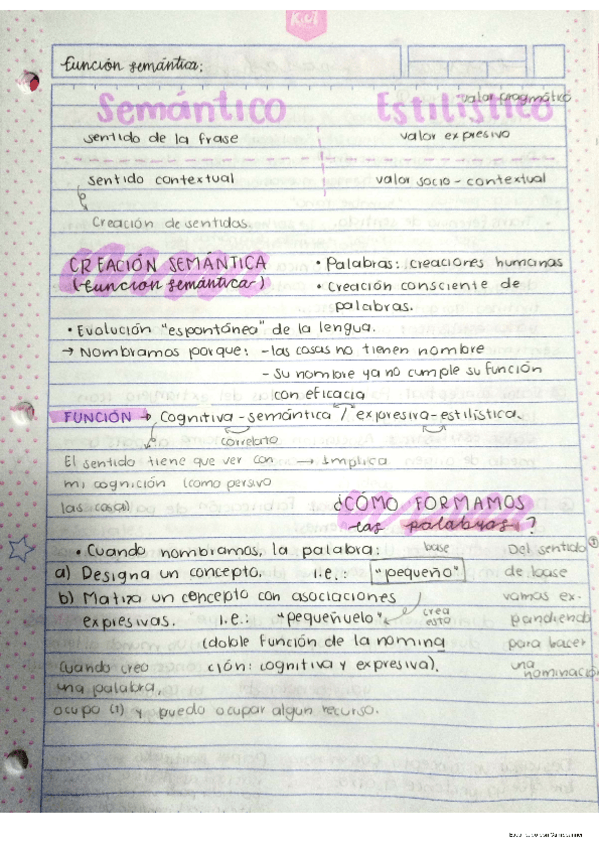 KiUT
Función semántica:
valor pragmático
Semántico Estilístico
sentido de la frase valor expresivo
sentido contextual valor socio-contextual
Creación de sentidos.
CREACIÓN SEMÁNTICA • Palabras: creaciones humanas
(función semántica) • Creación consciente de
palabras.
• Evolución "espontánea" de la lengua.
→ Nombramos porque: - las cosas no tienen nombre
- Su nombre ya no cumple su función
con eficacia
FUNCIÓN → Cognitiva-semántica / expresiva-estilística.
correlato
El sentido tiene que ver con → Implica
mi cognición (como persivo
las cosas)
¿CÓMO FORMAMOS
las palabras?
• Cuando nombramos, la palabra: base Del sentido
a) Designa un concepto. i.e.: "pequeño" de base
b) Matiza un concepto con asociaciones vamos ex-
expresivas. i.e.: "pequeñuelo" crea esto pandiendo
(doble función de la nomina para hacer
cuando creo ción: cognitiva y expresiva). una nominación
una palabra,
ocupo (1) y puedo ocupar algun recurso.